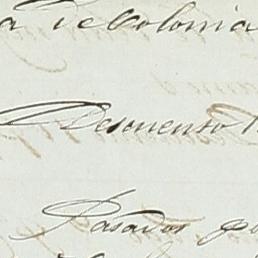 a de Colonia
Descuento
Pasados po